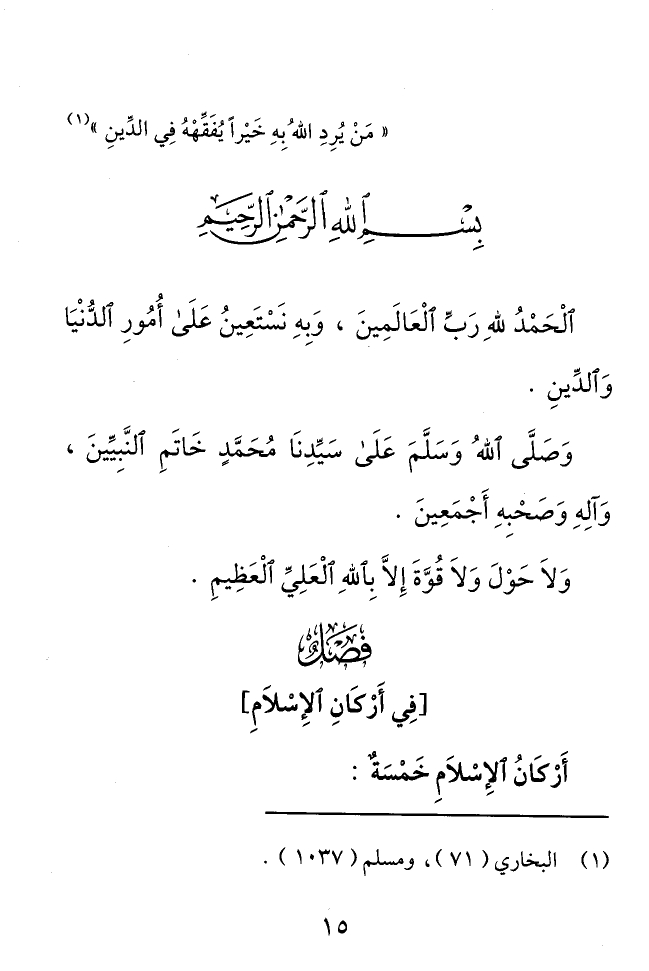 « مَنْ يُرِدِ اللهُ بِهِ خَيْراً يُفَقِّهْهُ فِي الدِّينِ »(١)
بِسْمِ ٱللهِ ٱلرَّحْمٰنِ ٱلرَّحِيمِ
ٱلْحَمْدُ للهِ رَبِّ ٱلْعَالَمِينَ ، وَبِهِ نَسْتَعِينُ عَلَىٰ أُمُورِ ٱلدُّنْيَا
وَٱلدِّينِ .
وَصَلَّى ٱللهُ وَسَلَّمَ عَلَىٰ سَيِّدِنَا مُحَمَّدٍ خَاتَمِ ٱلنَّبِيِّينَ ،
وَآلِهِ وَصَحْبِهِ أَجْمَعِينَ .
وَلاَ حَوْلَ وَلاَ قُوَّةَ إِلاَّ بِٱللهِ ٱلْعَلِيِّ ٱلْعَظِيمِ .
فَصْلٌ
[فِي أَرْكَانِ ٱلإِسْلاَمِ]
أَرْكَانُ ٱلإِسْلاَمِ خَمْسَةٌ :
(١) البخاري ( ٧١ ) ، ومسلم ( ١٠٣٧ ) .
١٥